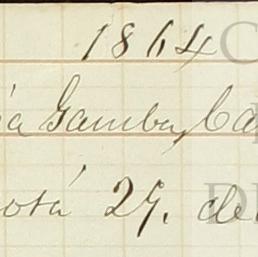 1864
a Gamba, Ca
otá 29. de